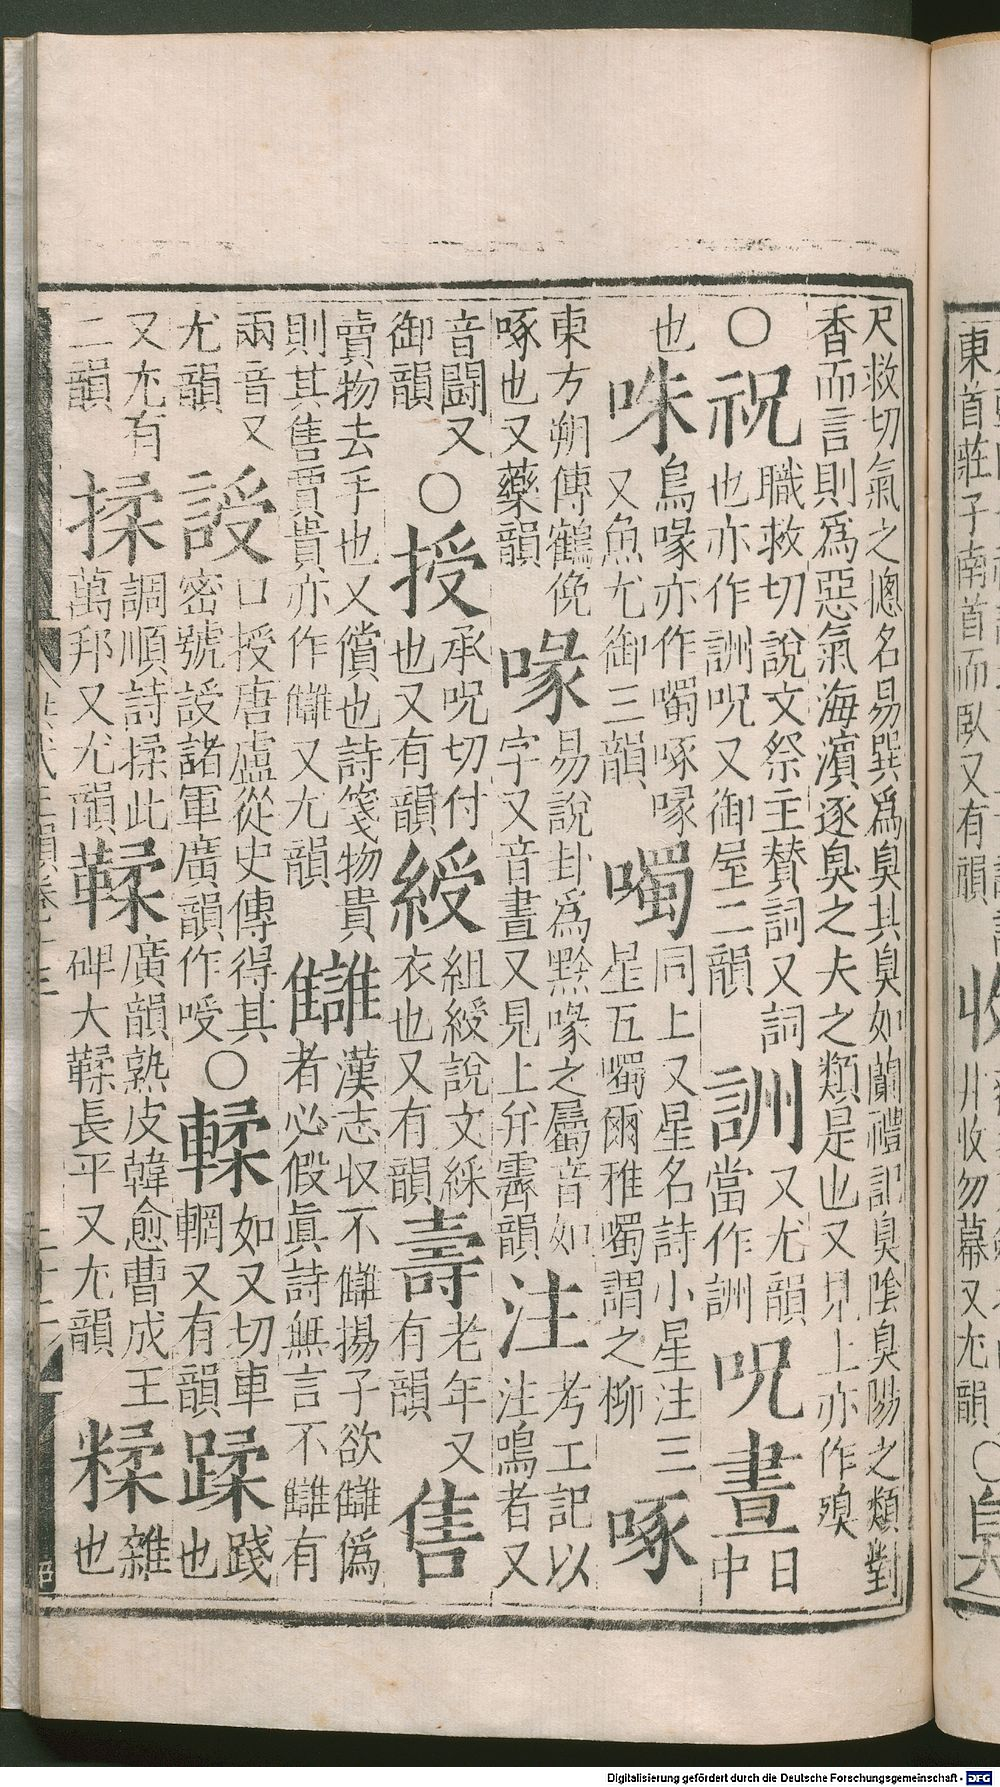 東首莊子南首而臥又有韻 收 収勿幕又尤韻 ○臭
尺救切氣之揔名易巽爲臭其臭如蘭禮記臭陰臭陽之類對
香而言則爲惡氣海濵逐臭之夫之類是也又見上亦作殠
○祝職救切說文祭主賛詞又詞也亦作詶呪又御屋二韻詶又尤韻當作詶呪晝日中
也咮鳥喙亦作噣啄喙又魚尤御三韻噣同上又星名詩小星注三星五噣爾雅噣謂之柳啄
東方朔傳鶴俛啄也又藥韻喙易說卦爲黔喙之屬音如字又音晝又見上幷霽韻注考工記以注鳴者又
音鬪又御韻○授承呪切付也又有韻綬組綬說文綵衣也又有韻壽老年又有韻售
賣物去手也又償也詩箋物貴則其售賈貴亦作讎又尤韻讎漢志収不讎揚子欲讎僞者必假眞詩無言不讎有
兩音又尤韻䛵口授唐盧從史傳得其密號䛵諸軍廣韻作㖟○輮如又切車輞又有韻蹂踐也
又尤有二韻揉調順詩揉此萬邦又尤韻鞣廣韻熟皮韓愈曹成王碑大鞣長平又尤韻糅雜也
Digitalisierung gefördert durch die Deutsche Forschungsgemeinschaft - DFG